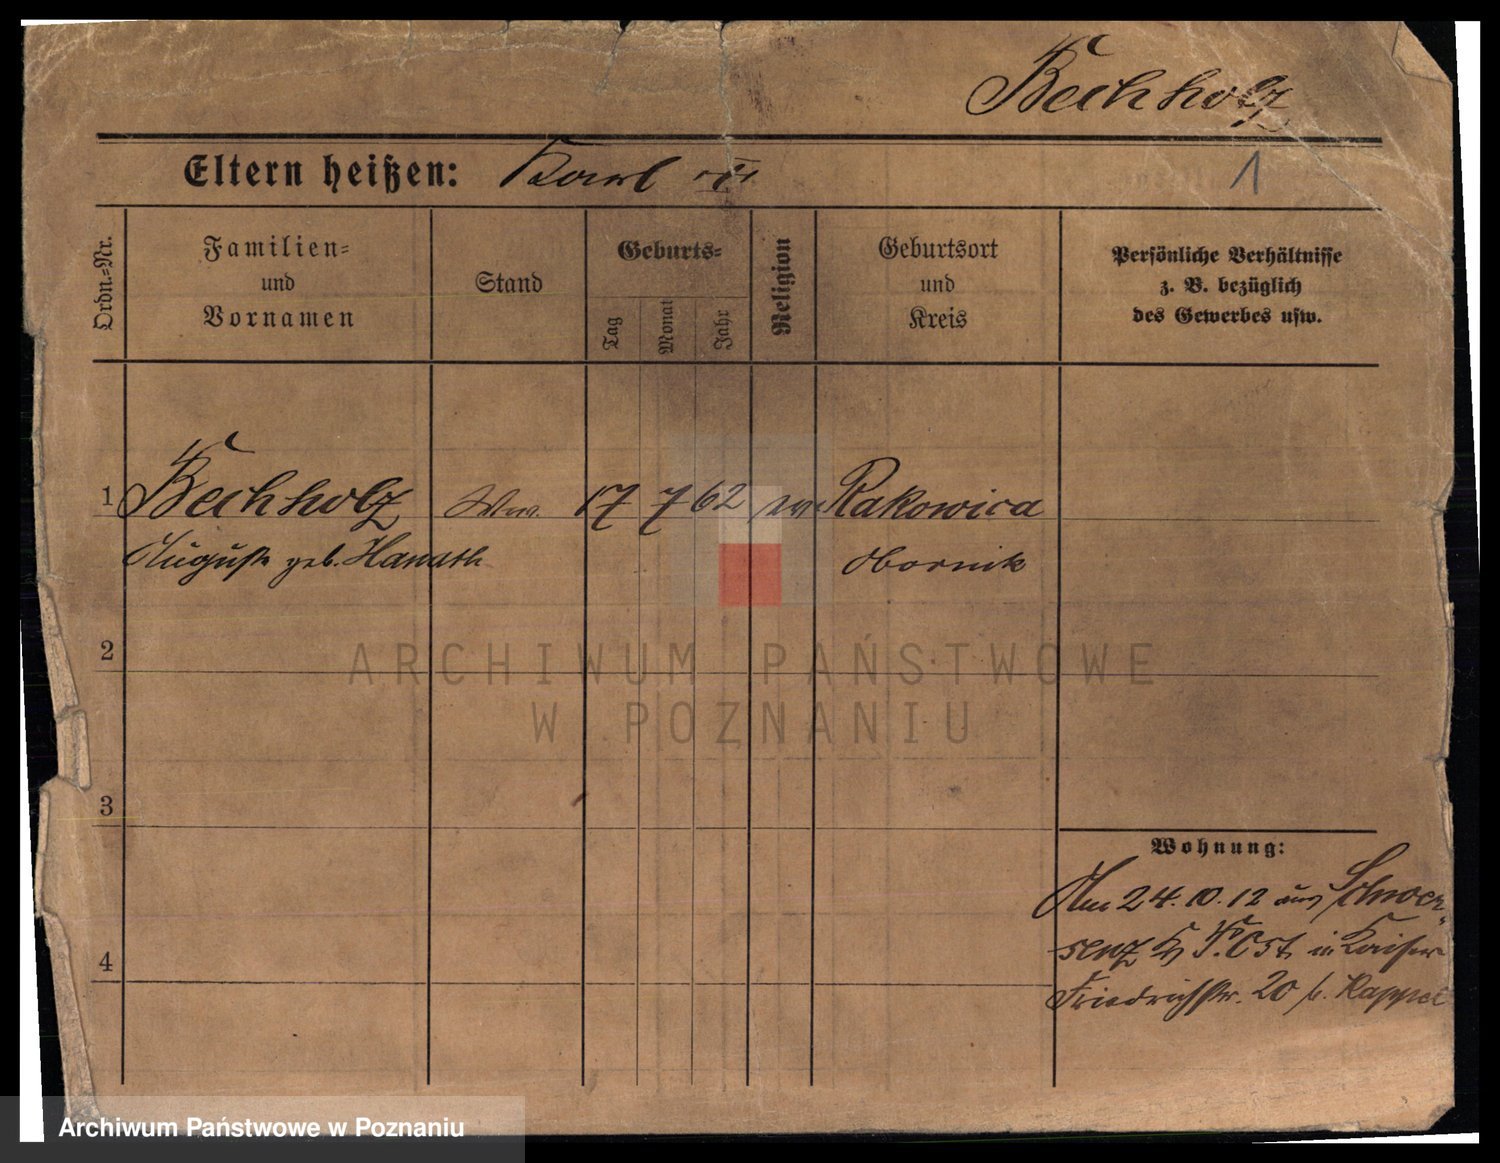 Bechholz
Eltern heißen: Karl
1
Ordn.=Nr.
Familien=
und
Vornamen
Stand
Geburts=
Tag
Monat
Jahr
Religion
Geburtsort
und
Kreis
Persönliche Verhältnisse
z. B. bezüglich
des Gewerbes usw.
1 Bechholz Ww. 17 7 62 ev. Rakowica
Auguste geb. Hanath Obornik
2
ARCHIWUM PAŃSTWOWE
W POZNANIU
3
Wohnung:
Am 24.10.12 aus Schwer-
senz Kr. P. Ost in Kaiser
Friedrichstr. 20 b. Kappel
4
Archiwum Państwowe w Poznaniu